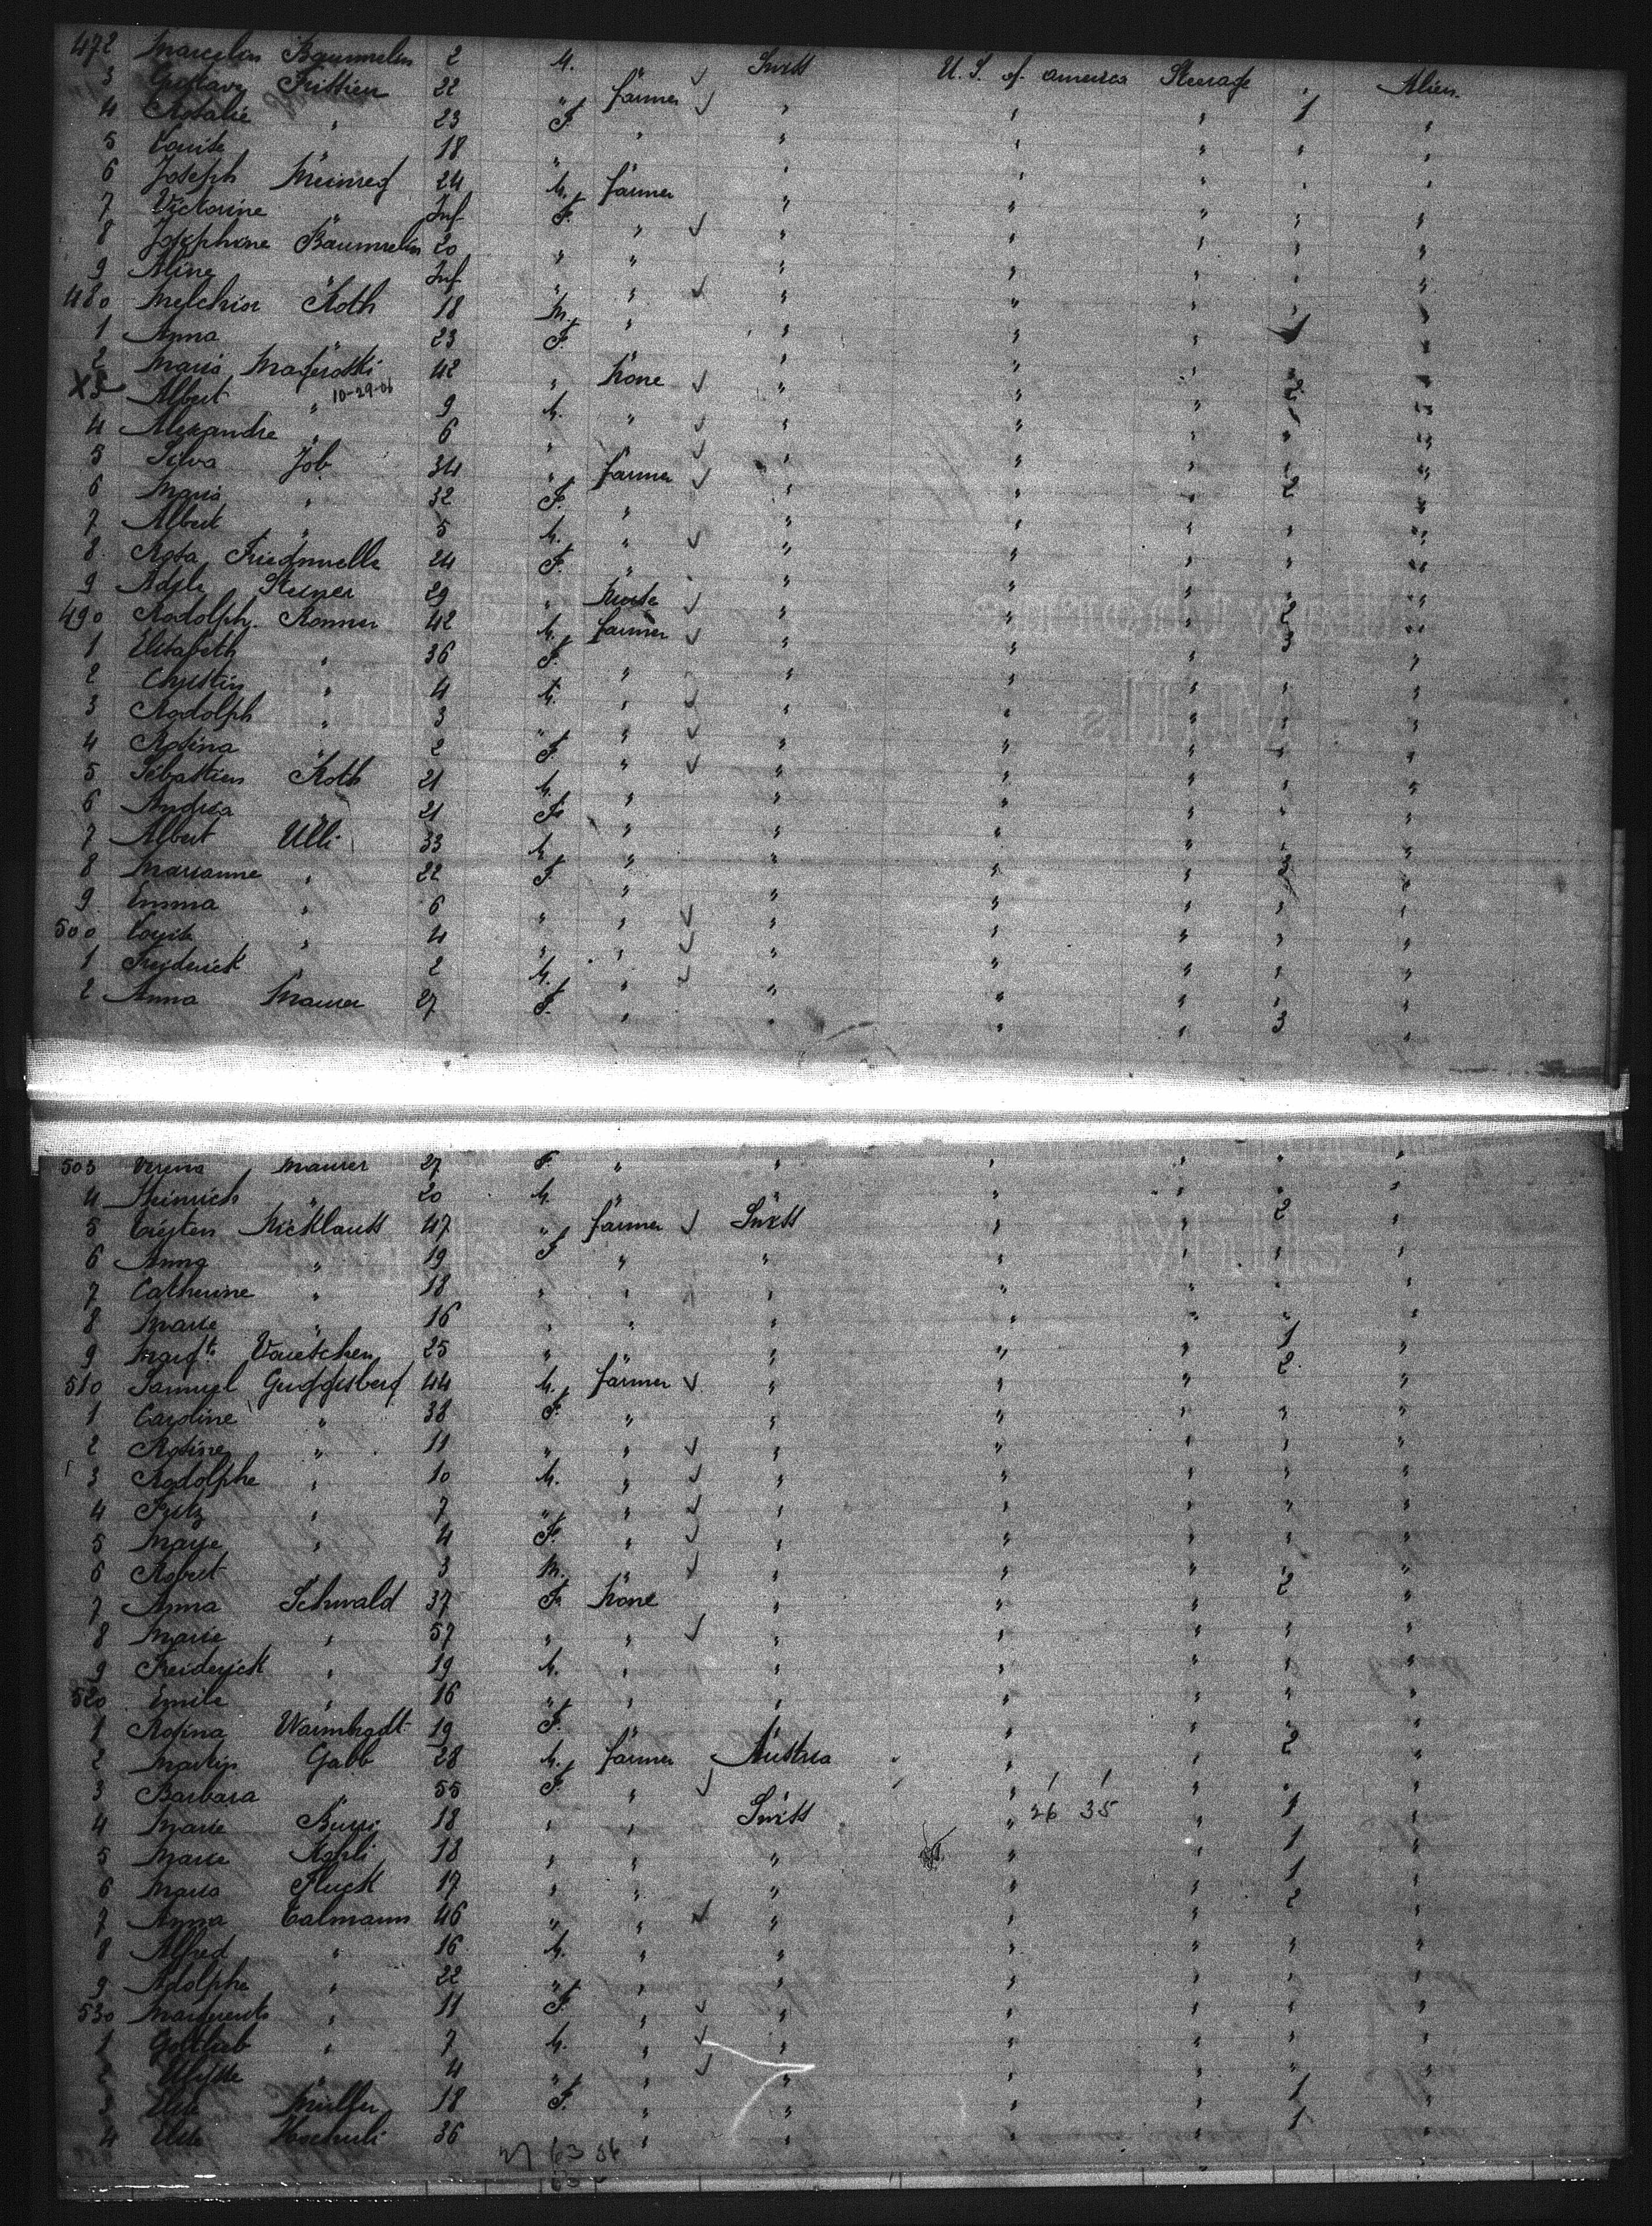 472 Marcelin Baumnelin 2 M. " Swiss U. S. of America Steerage " Alien
3 Gustav Frittien 22 " farmer " " " 1 "
4 Rosalie " 23 F. " " " " " "
5 Louise " 18 " " " " " " "
6 Joseph Meinrad 24 M. farmer " " " " "
7 Victorine " Inf F. " " " " " "
8 Josephine Baumnelin 20 " " " " " " "
9 Aline " Inf " " " " " " "
480 Melchior Roth 18 M. " " " " 1 "
1 Anna " 23 F. " " " " " "
2 Maria 42 " None " " " 2 "
X3 Albert " 10-29-06 9 M. " " " " " "
4 Alexandre " 6 " " " " " " "
5 Silva Job 34 " farmer " " " 2 "
6 Maria " 32 F. " " " " " "
7 Albert " 5 M. " " " " " "
8 Rosa 24 F. " " " " " "
9 Adele Steiner 29 " " " " 2 "
490 Rodolph. Rommer 42 M. farmer " " " 3 "
1 Elisabeth " 36 F. " " " " " "
2 Christin " 4 M. " " " " " "
3 Rodolph " 3 " " " " " " "
4 Rosina " 2 F. " " " " " "
5 Sebastien Roth 21 M. " " " " " "
6 Andrea " 21 F. " " " " " "
7 Albert Ulli 33 M. " " " " 3 "
8 Marianne " 22 F. " " " " " "
9 Emma " 6 " " " " " " "
500 Louise " 4 " " " " " " "
1 Freiderick " 2 M. " " " " " "
2 Anna Maurer 27 F. " " " " 3 "
503 Verena Maurer 27 F. " " " " " "
4 Heinrich " 20 M. " " " " 2 "
5 Nicklauss 47 " farmer Swiss " " " "
6 Anna " 19 F " " " " " "
7 Catherine " 18 " " " " " " "
8 Marie " 16 " " " " " 1 "
9 Margt. 25 " " " " " 2. "
510 Samuel Guggisberg 44 M. farmer " " " " "
1 Caroline " 38 F. " " " " " "
2 Rosine " 11 " " " " " " "
3 Rodolphe " 10 M. " " " " " "
4 Fritz " 7 " " " " " " "
5 Marie " 4 F. " " " " " "
6 Robert " 3 M. " " " " 2 "
7 Anna Schwald 37 F. None " " " " "
8 Marie " 57 " " " " " " "
9 Freiderick " 19 M. " " " " " "
520 Emile " 16 " " " " " " "
1 Rosina Warmbrodt 19 F. " " " " 2 "
2 Martin Gabb 28 M. farmer Austria " " " "
3 Barbara " 55 F. " " " 26 35 " 1 "
4 Marie Burri 18 " " Swiss " " 1 "
5 Marie Kohli 18 " " " " " 1 "
6 Maria Fluck 17 " " " " " 2 "
7 Anna Talmann 46 " " " " " " "
8 Alfred " 16 M. " " " " " "
9 Adolphe " 22 " " " " " " "
530 Marguerite " 11 F. " " " " " "
1 Gottlieb " 7 M. " " " " " "
2 Ulysse " 4 " " " " " 1 "
3 Elise Müller 18 F. " " " " 1 "
4 Elise 36 " "
27 63 86
63